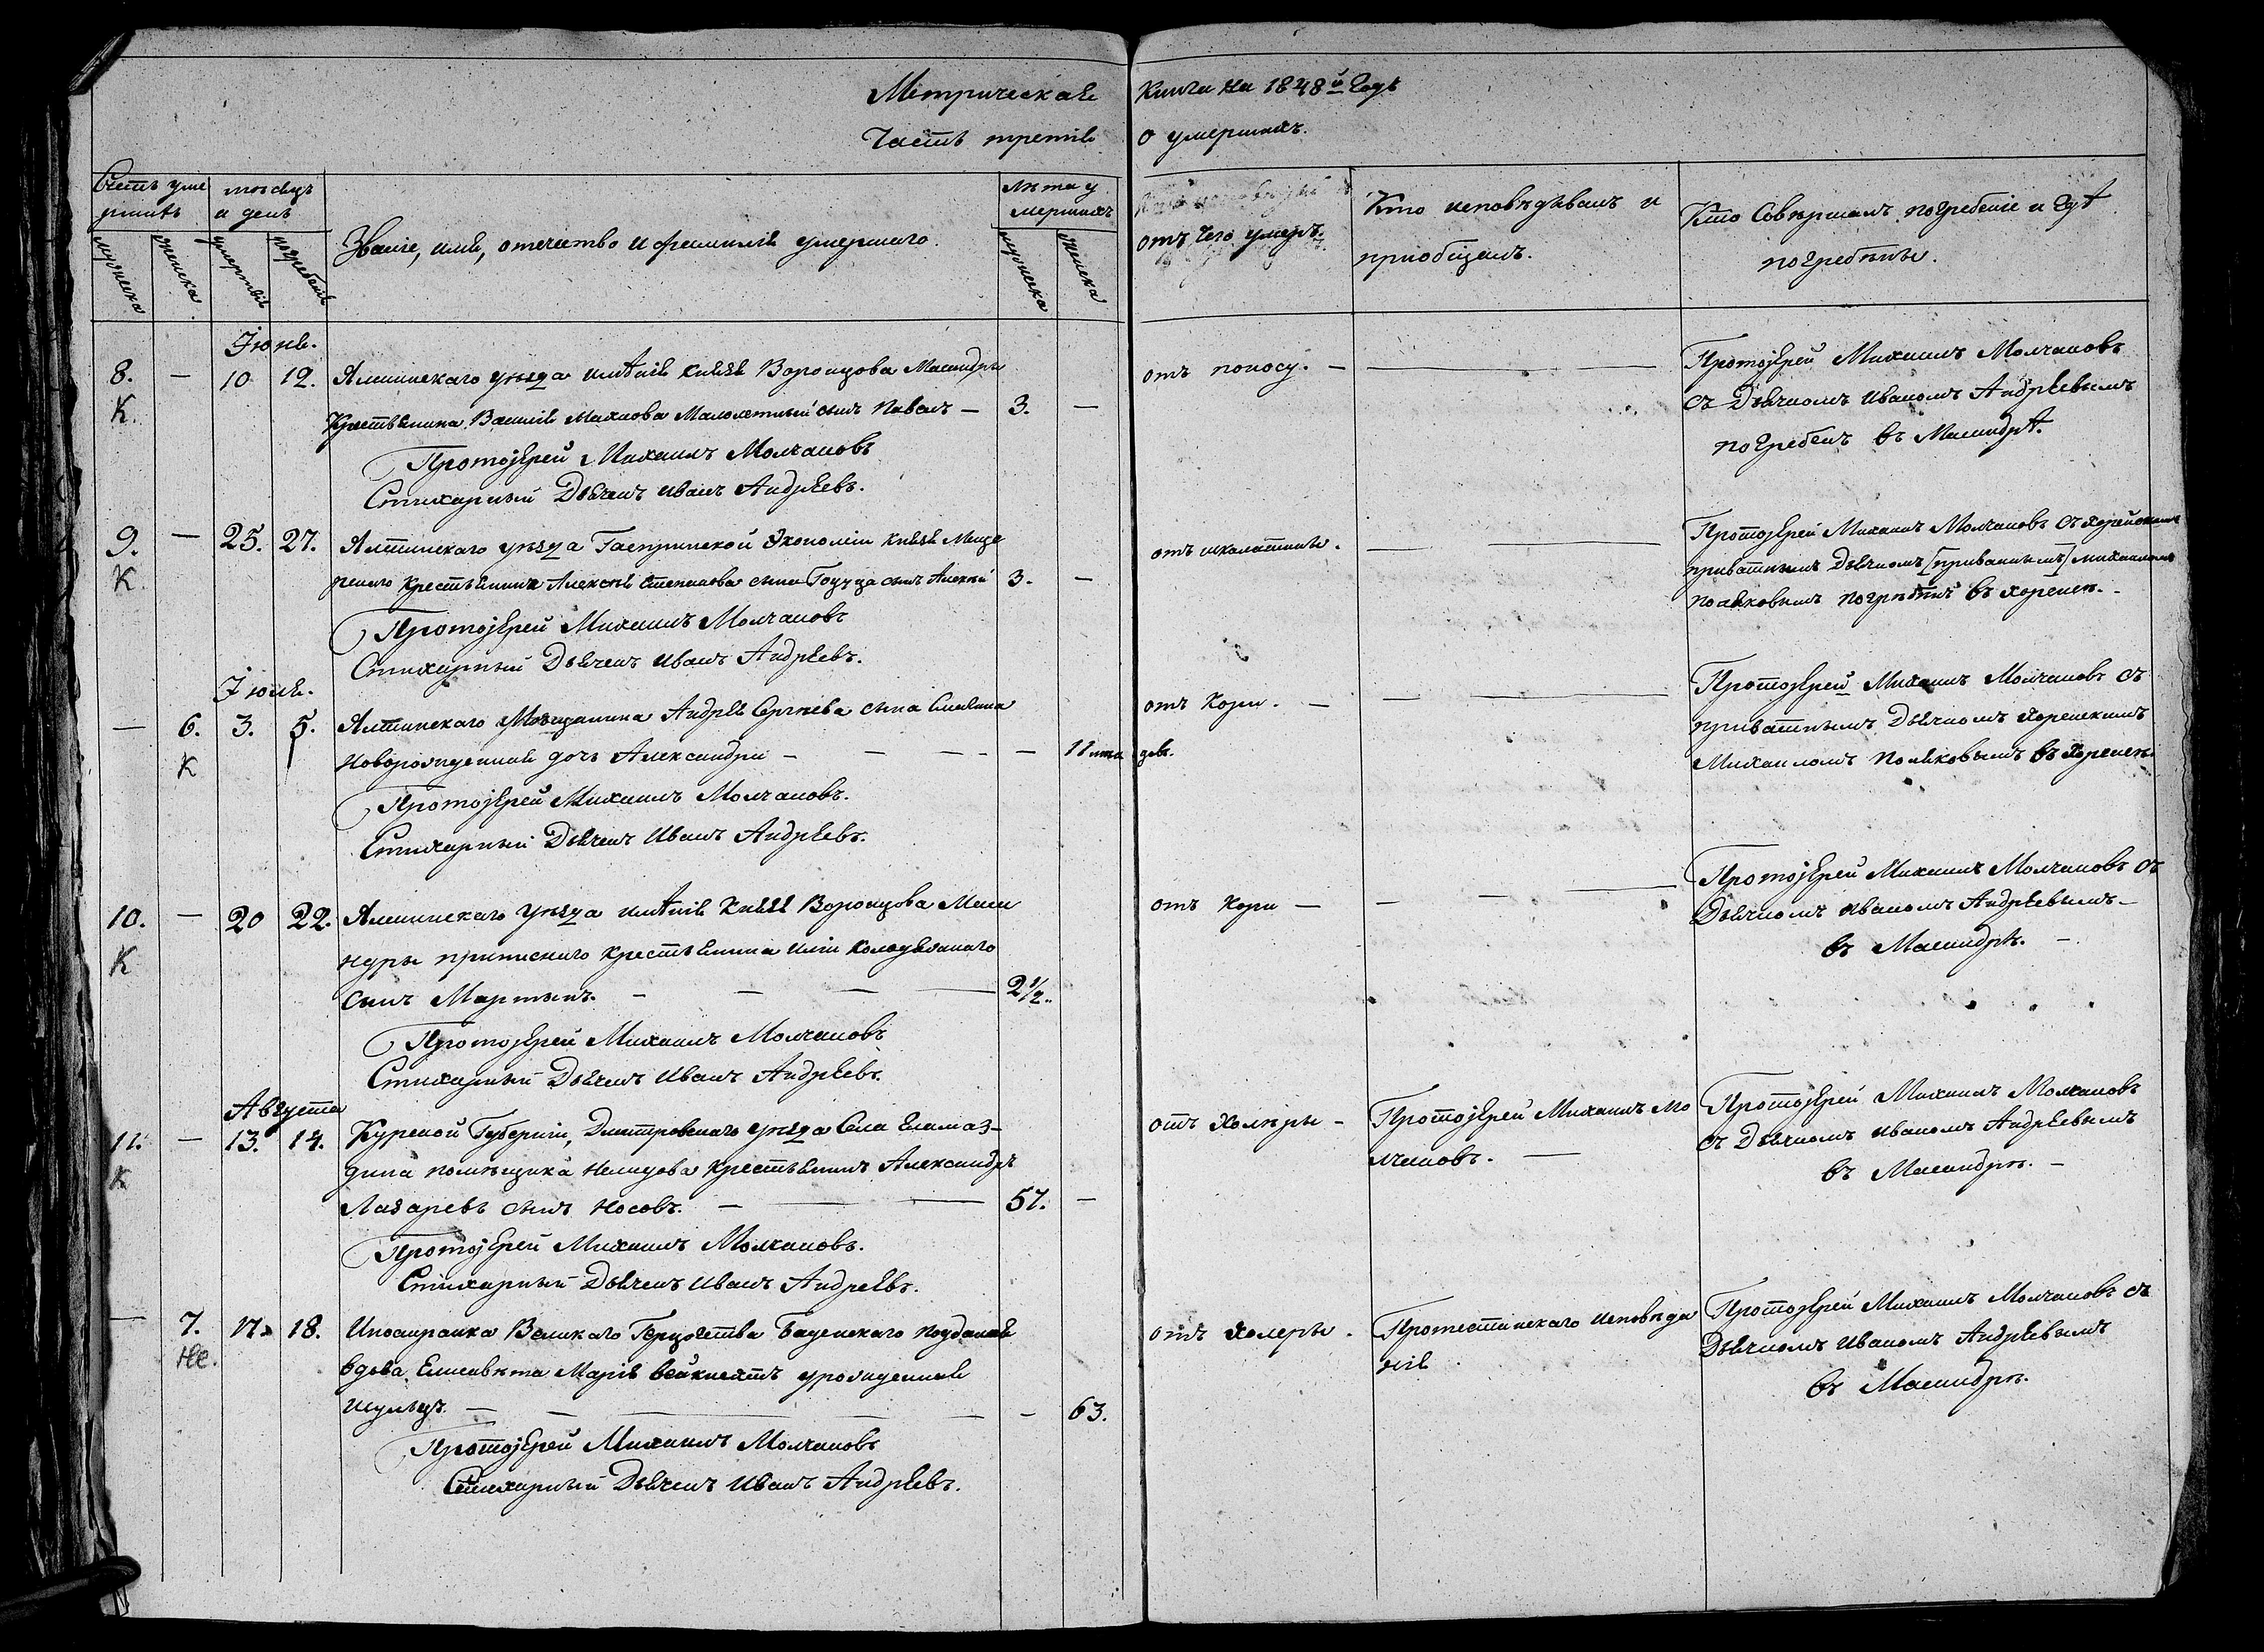 Метрическая Книга на 1848й Годъ
Часть третія о умершихъ.
Счетъ уме
ршихъ
мѣсяцъ
и день
Званіе, имя, отечество и фамилія умершаго.
Лѣта у
мершихъ
отъ чего умеръ.
Кто исповѣдывалъ и
приобщалъ.
Кто Совершалъ погребеніе и гдѣ
погребены.
мужеска
женска
смерти
погребенія
мужеска
женска
Іюня.
8. — 10 12. Ялтинскаго уѣзда имѣнія князя Воронцова Масандры
К. Крестьянина Василія Малолетный сынъ Павелъ — 3. —
Протоіерей Михаилъ Молчановъ
Стихарный Дьячекъ Иванъ Андреевъ.
отъ поносу. —
Протоіерей Михаилъ Молчановъ
съ Дьячкомъ Иваномъ Андреевымъ
погребенъ въ Масандрѣ.
9. — 25. 27. Ялтинскаго уѣзда Гаспринской Экономіи князя Меще
К. рскаго Крестьянина Алексѣя Степанова сына сынъ Алексѣй 3. —
Протоіерей Михаилъ Молчановъ
Стихарный Дьячекъ Иванъ Андреевъ.
отъ шкалатины.
Протоіерей Михаилъ Молчановъ съ
приватнымъ Дьячкомъ Михаиломъ
Поляковымъ погребенъ въ
Іюля.
— 6. 3. 5. Ялтинскаго Мѣщанина Андрея Сергѣева сына
К Новорожденная дочь Александра — — — — 11 мѣся цевъ.
Протоіерей Михаилъ Молчановъ.
Стихарный Дьячекъ Иванъ Андреевъ.
отъ Кори. —
Протоіерей Михаилъ Молчановъ съ
приватнымъ Дьячкомъ
Михаиломъ Поляковымъ въ
10. — 20 22. Ялтинскаго Уѣзда имѣнія Князя Воронцова Маса
К ндры приписнаго крестьянина
сынъ Мартынъ. — — — 2 1/2.
Протоіерей Михаилъ Молчановъ
Стихарный Дьячекъ Иванъ Андреевъ.
отъ Кори —
Протоіерей Михаилъ Молчановъ съ
Дьячкомъ Иваномъ Андреевымъ —
въ Масандрѣ. —
Августа
11. — 13. 14. Курской Губерніи, Дмитровскаго уѣзда Села
К дина помѣщика Нелидова Крестьянинъ Александръ
Лазаревъ сынъ Носовъ. — 57. —
Протоіерей Михаилъ Молчановъ.
Стихарный Дьячекъ Иванъ Андреевъ.
отъ Холеры —
Протоіерей Михаилъ Мо
лчановъ. —
Протоіерей Михаилъ Молчановъ
съ Дьячкомъ Иваномъ Андреевымъ
въ Масандрѣ. —
— 7. 17. 18. Иностранка Великаго Герцогства Баденскаго подданная
Не. вдова Елисавета Марія урожденная
Шульцъ. — — — — 63.
Протоіерей Михаилъ Молчановъ
Стихарный Дьячекъ Иванъ Андреевъ.
отъ Холеры.
Протестанскаго исповѣда
нія
Протоіерей Михаилъ Молчановъ съ
Дьячкомъ Иваномъ Андреевымъ
въ Масандрѣ.